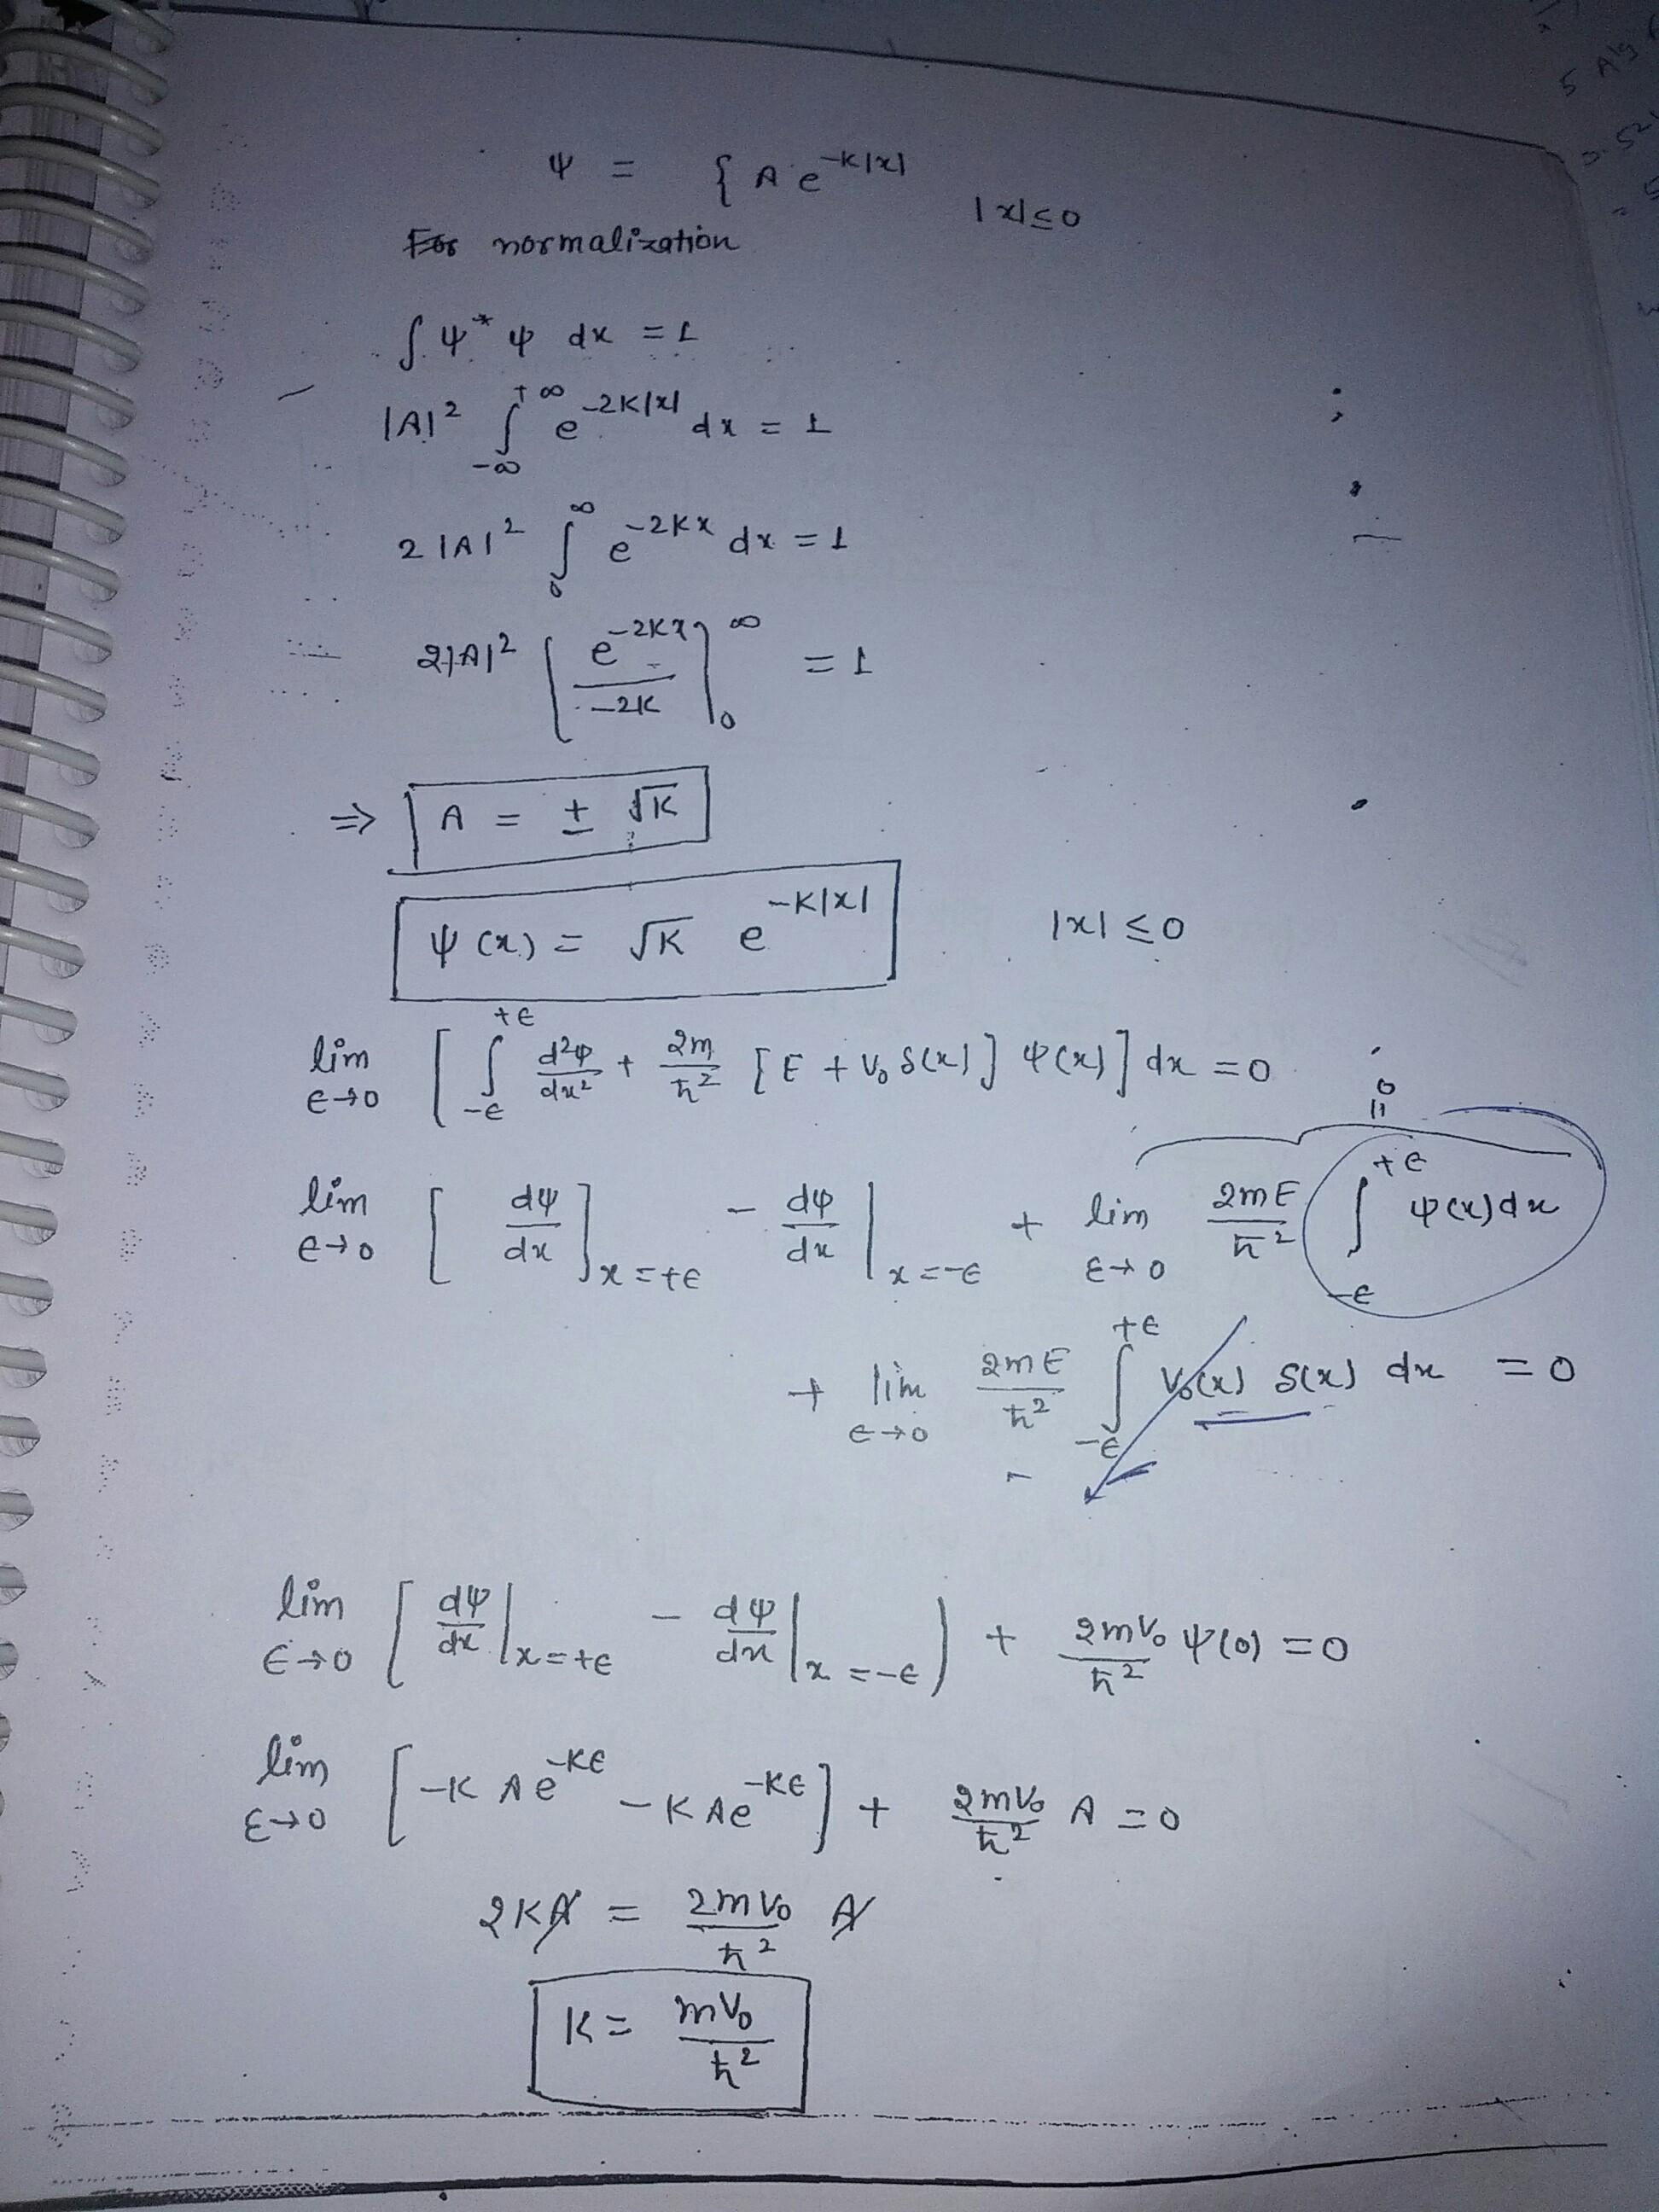 ψ = { A e^{-K|x|}
|x| ≤ 0
For normalization
∫ ψ* ψ dx = 1
|A|² ∫_{-∞}^{+∞} e^{-2K|x|} dx = 1
2 |A|² ∫_0^∞ e^{-2Kx} dx = 1
2|A|² [ e^{-2Kx} / -2K ]_0^∞ = 1
⇒ A = ± √K
ψ(x) = √K e^{-K|x|} |x| ≤ 0
lim_{ϵ→0} [ ∫_{-ϵ}^{+ϵ} d²ψ/dx² + 2m/ħ² [E + V₀ δ(x)] ψ(x) ] dx = 0
0
||
lim_{ϵ→0} [ dψ/dx ]_{x=+ϵ} - dψ/dx |_{x=-ϵ} + lim_{ϵ→0} 2mE/ħ² ∫_{-ϵ}^{+ϵ} ψ(x) dx
+ lim_{ϵ→0} 2mE/ħ² ∫_{-ϵ}^{+ϵ} V₀(x) δ(x) dx = 0
lim_{ϵ→0} [ dψ/dx |_{x=+ϵ} - dψ/dx |_{x=-ϵ} ) + 2mV₀/ħ² ψ(0) = 0
lim_{ϵ→0} [ -K A e^{-Kϵ} - K A e^{-Kϵ} ] + 2mV₀/ħ² A = 0
2KA = 2mV₀/ħ² A
K = mV₀/ħ²